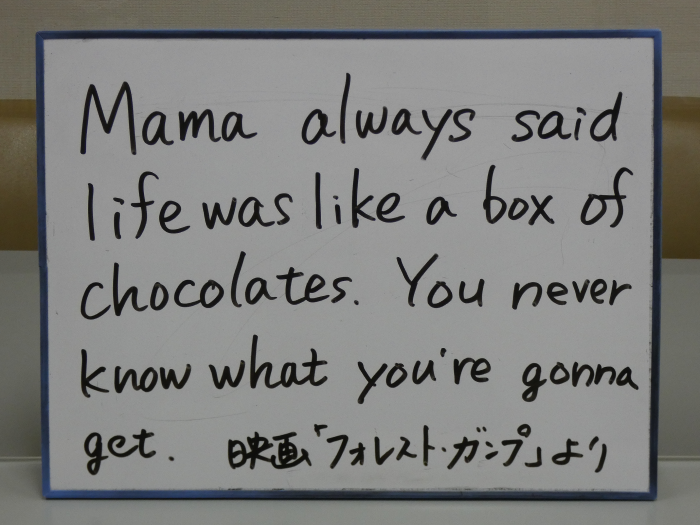 Mama always said
life was like a box of
chocolates. You never
know what you're gonna
get. 映画「フォレスト・ガンプ」より